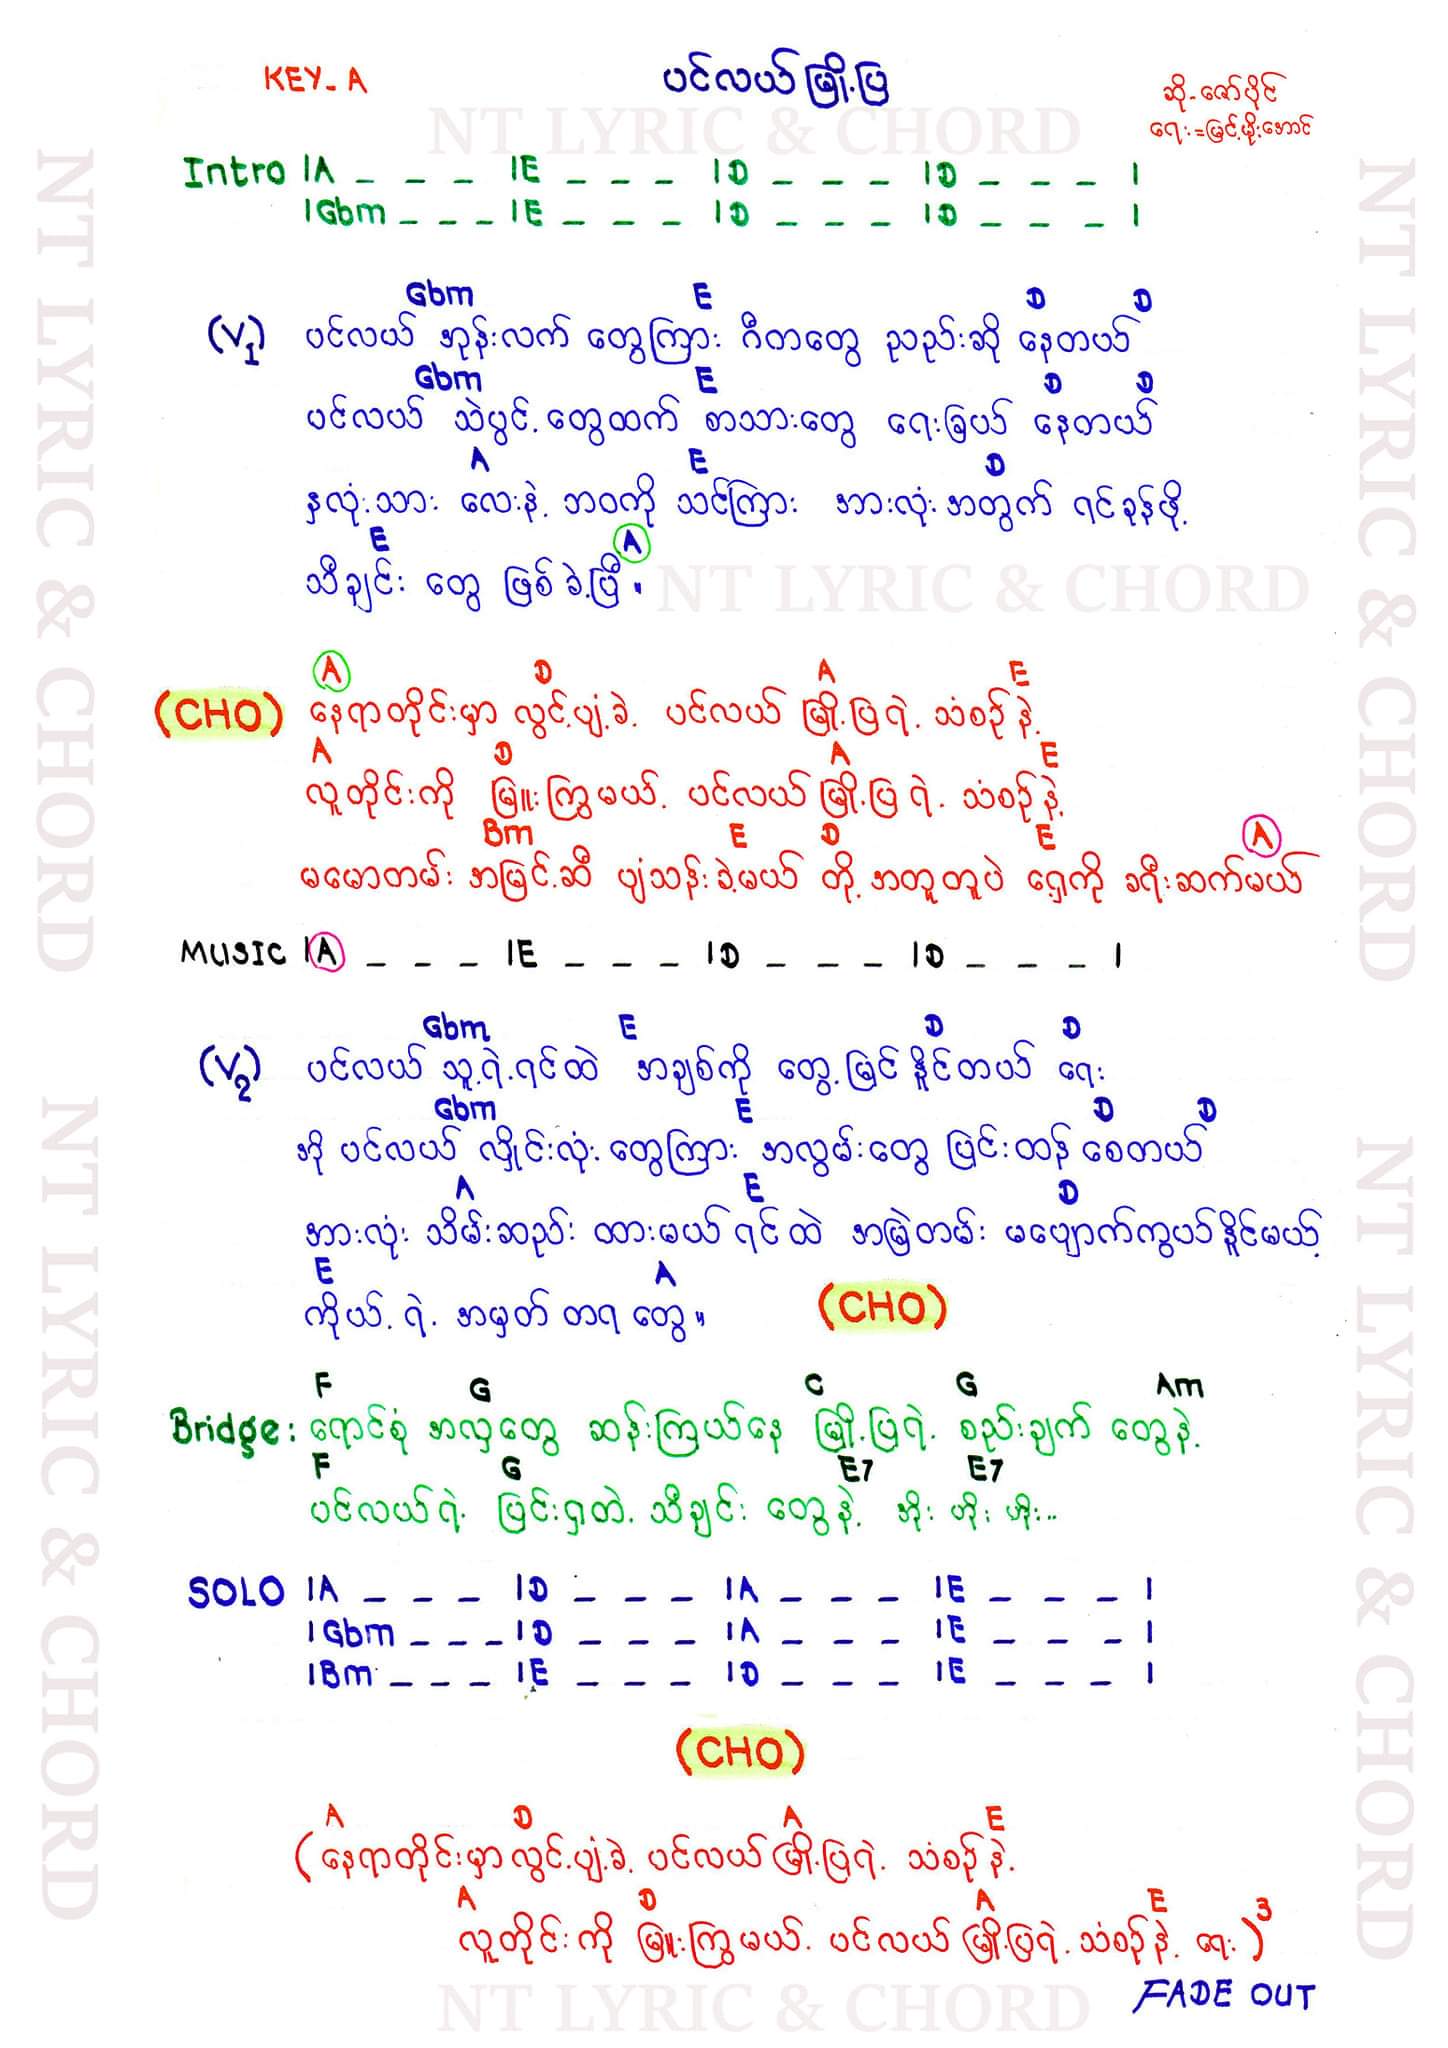 KEY - A
ပင်လယ်မြို့ပြ
ဆို - ဇော်ပိုင်
ရေး = မြင့်မိုးအောင်
NT LYRIC & CHORD
Intro |A _ _ _ |E _ _ _ |D _ _ _ |D _ _ _ |
|Gbm _ _ _ |E _ _ _ |D _ _ _ |D _ _ _ |
Gbm E D D
(V1) ပင်လယ် အုန်းလက် တွေကြား ဂီကတွေ ညည်းဆို နေတယ်
Gbm E D D
ပင်လယ် သဲပွင့် တွေထက် စာသားတွေ ရေးခြယ် နေတယ်
A E D
နှလုံးသား လေးနဲ့ ဘဝကို သင်ကြား အားလုံး အတွက် ရင်ခုန်ဖို့
E A
သီချင်း တွေ ဖြစ်ခဲ့ပြီ။
NT LYRIC & CHORD
A D A E
(CHO) နေရာတိုင်းမှာ လွင့်ပျံ့ခဲ့ ပင်လယ် မြို့ပြရဲ့ သံစဉ်နဲ့
A D A E
လူတိုင်းကို မြူးကြွမယ့် ပင်လယ် မြို့ပြရဲ့ သံစဉ်နဲ့
Bm E D E A
မမောတမ်း အမြင့်ဆီ ပျံသန်းခဲ့မယ် တို့ အတူတူပဲ ရှေ့ကို ခရီးဆက်မယ်
MUSIC |A _ _ _ |E _ _ _ |D _ _ _ |D _ _ _ |
Gbm E D D
(V2) ပင်လယ် သူ့ရဲ့ရင်ထဲ အချစ်ကို တွေ့မြင်နိူင်တယ် ရေး
Gbm E D D
အို ပင်လယ် လှိုင်းလုံး တွေကြား အလွမ်းတွေ ပြင်းထန် စေတယ်
A E D
အားလုံး သိမ်းဆည်း ထားမယ် ရင်ထဲ အမြဲတမ်း မပျောက်ကွယ်နိူင်မယ့်
E A
ကိုယ့် ရဲ့ အမှတ် တရ တွေ။ (CHO)
F G C G Am
Bridge: ရောင်စုံ အလှတွေ ဆန်းကြယ်နေ မြို့ပြရဲ့ စည်းချက် တွေနဲ့
F G E7 E7
ပင်လယ်ရဲ့ ပြင်းရှတဲ့ သီချင်း တွေနဲ့ အိုး ဟိုး ဟိုး..
SOLO |A _ _ _ |D _ _ _ |A _ _ _ |E _ _ _ |
|Gbm _ _ _ |D _ _ _ |A _ _ _ |E _ _ _ |
|Bm _ _ _ |E _ _ _ |D _ _ _ |E _ _ _ |
(CHO)
A D A E
(နေရာတိုင်းမှာ လွင့်ပျံ့ခဲ့ ပင်လယ် မြို့ပြရဲ့ သံစဉ်နဲ့
A D A E
လူတိုင်းကို မြူးကြွမယ့် ပင်လယ် မြို့ပြရဲ့ သံစဉ်နဲ့ ရေး)3
FADE OUT
NT LYRIC & CHORD
NT LYRIC & CHORD
NT LYRIC & CHORD
NT LYRIC & CHORD
NT LYRIC & CHORD